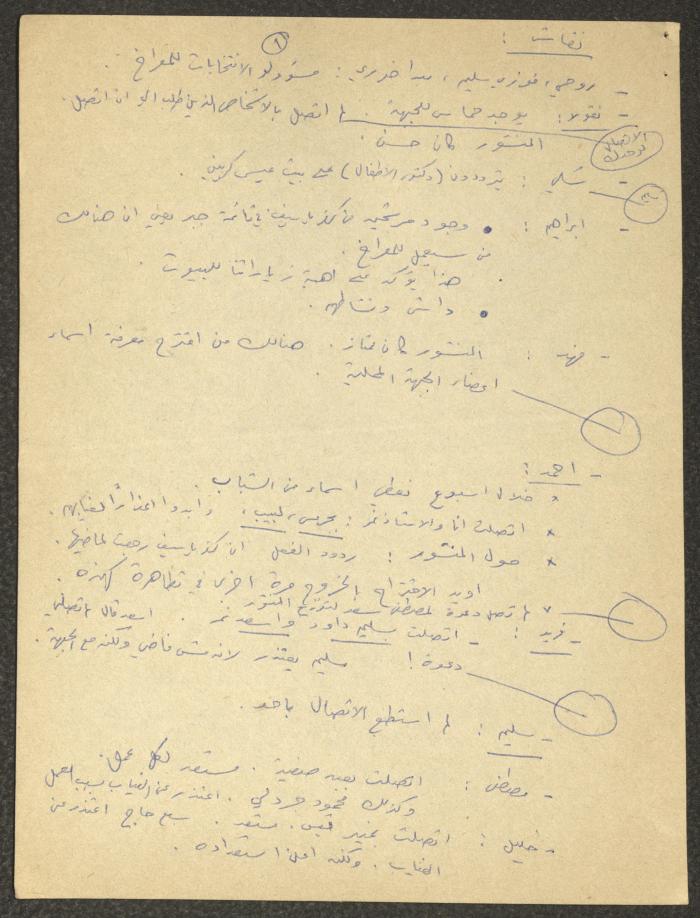 نقاش :
١
- روحي، فوزي سليم، : مسؤولو الانتخابات للفراخ .
- نقولا : يوجد حماس للجبهة . لم اتصل بالاشخاص الذين طلب الي ان اتصل.
المنشور كان حسن .
الاتصال
- شكري : يترددون (دكتور الاطفال) على بيت عيسى
سليم
- ابراهيم : • وجود مرشحين من كفرياسيف في قائمة يعني ان هنالك
من سيعمل للفراخ .
هذا يؤكد على اهمية زياراتنا للبيوت .
• داش ونشاطهم .
- فهد : المنشور كان ممتاز . هنالك من اقترح معرفة اسماء
اعضاء الجبهة المحلية .
- احمد :
× خلال اسبوع نعطي اسماء من الشباب .
× اتصلت انا والاستاذ نمر : جريس، لبيب، وابدوا اعذاراً لغيابهم .
× حول المنشور : ردود الفعل ان كفرياسيف رجعت لماضيها.
اويد الاقتراح بالخروج مرة اخرى في تظاهرة كهذه .
× لم تصل دعوة لمصطفى سعد لتوزيع المنشور
- فريد : - اتصلت سليم داود واسعد نمر . اسعد قال لم تصلني
دعوة ! سليم يعتذر لانه مش فاضي ولكنه مع الجبهة .
- سليم : لم استطع الاتصال باحد .
- مصطفى : اتصلت بعبد . مستعد لكل عمل .
وكذلك محمود . اعتذر عن الغياب بسبب العمل
- خليل : اتصلت بمنير قيس . مستعد . سبع حاج اعتذر عن
الغياب . ولكنه اعلن استعداده .